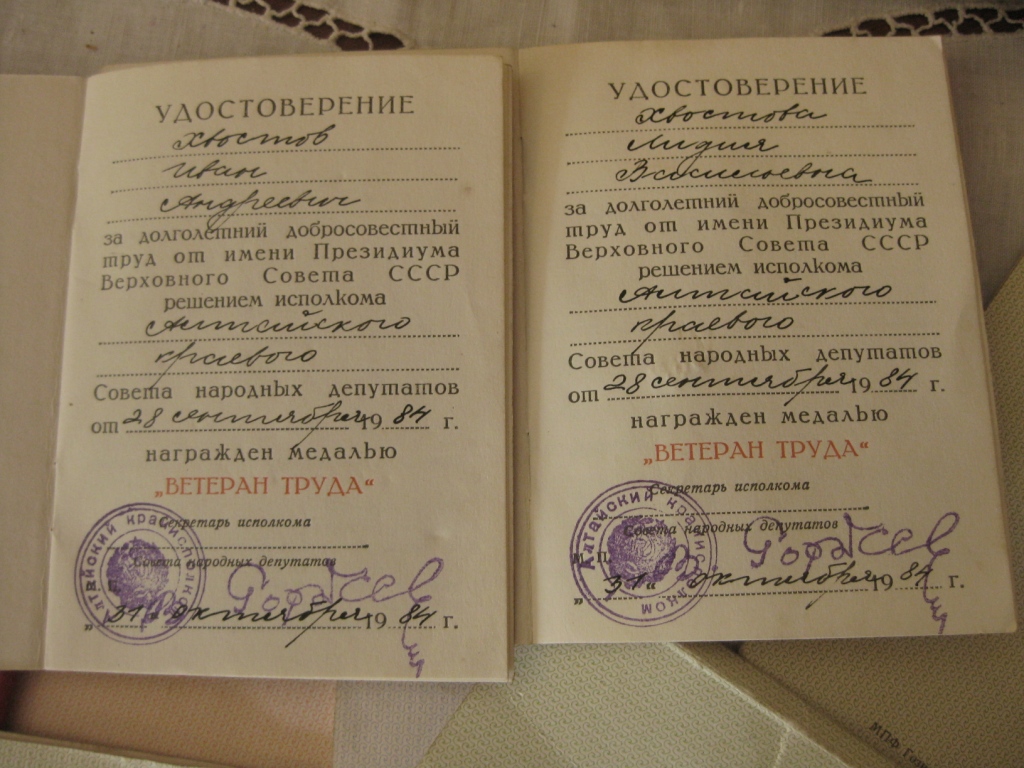 УДОСТОВЕРЕНИЕ
Хвостов
Иван
Андреевич
за долголетний добросовестный
труд от имени Президиума
Верховного Совета СССР
решением исполкома
Алтайского
краевого
Совета народных депутатов
от 28 сентября 1984 г.
награжден медалью
„ВЕТЕРАН ТРУДА“
Секретарь исполкома
Совета народных депутатов
Алтайский крайисполком
„31“ октября 1984 г.
УДОСТОВЕРЕНИЕ
Хвостова
Лидия
за долголетний добросовестный
труд от имени Президиума
Верховного Совета СССР
решением исполкома
Алтайского
краевого
Совета народных депутатов
от 28 сентября 1984 г.
награжден медалью
„ВЕТЕРАН ТРУДА“
Секретарь исполкома
Совета народных депутатов
Алтайский крайисполком
М. П.
„31“ октября 1984 г.
ИПФ